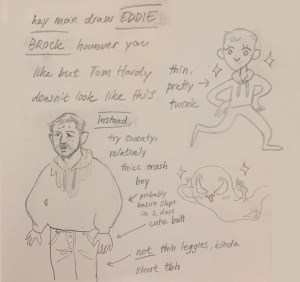 hey man draw EDDIE
BROCK however you
like but Tom Hardy
doesn't look like this
thin,
pretty
twink
Instead,
try sweaty,
relatively
thicc trash
boy
probably
hasn't slept
in 2 days
cute butt
not thin leggies, kinda
short tbh